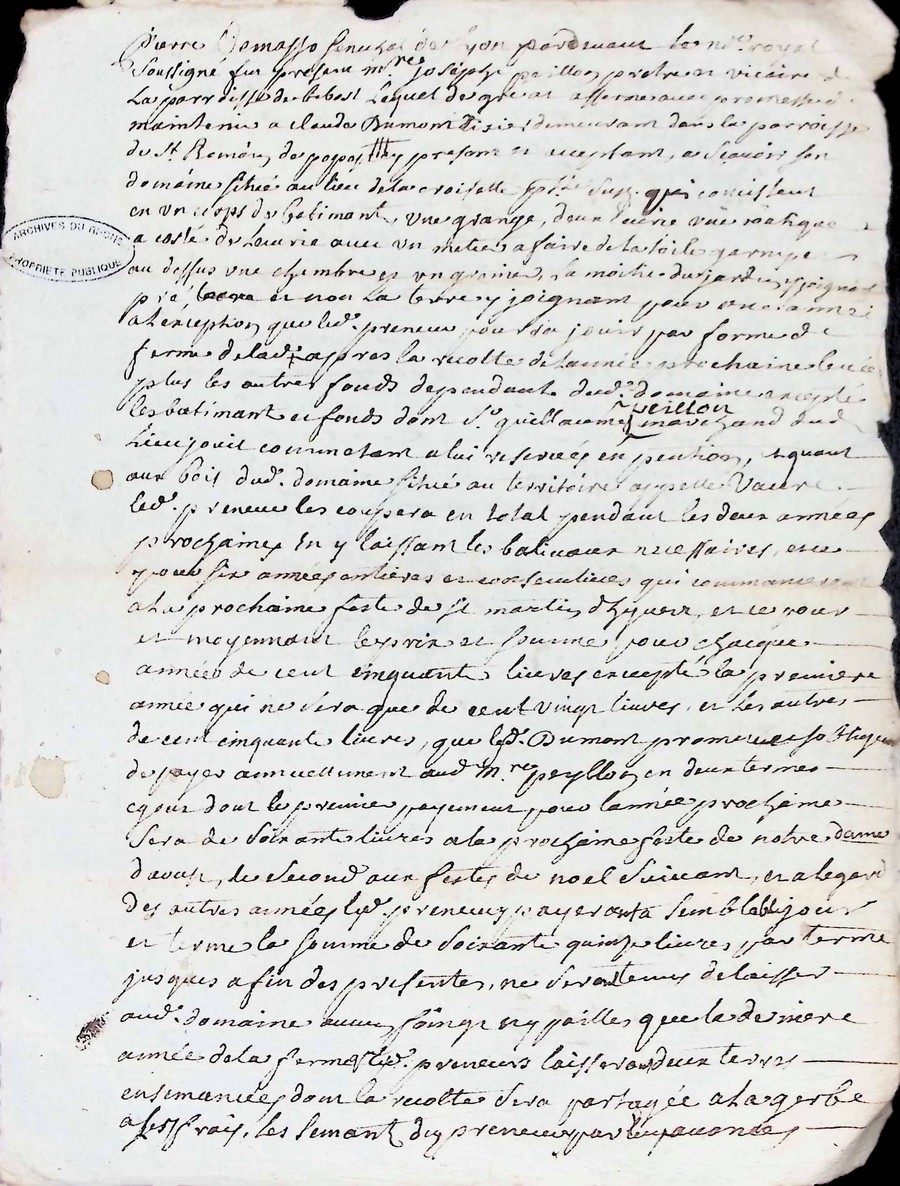 Pierre Damasso senechal de Lyon pardevant le no.re royal
soussigné fut presant m.re joseph peillon prestre et vicaire de
La parroisse de bibost Lequel de gré at afferme avec promesse de
maintenir a claude Dumont tixier demeurant dans la parroisse
de St Romain de popey presant et acceptant, a sçavoir son
domaine situé au lieu de la croisette qui consistent
en un corps de batimant, une grange, deux ecurie une
a costé de Lecurie avec un metier a faire de la toile garny
au dessus une chambre et un grenier, la moitié du jardin joignant
pré, et non La terre y joignant pour
a Lexception que led. preneur pourra jouir par forme de
ferme delad. apres la recolte de Lannée prochaine
plus les autres fonds dependant dud. domaine excepté
les batimant et fonds dont Sr guillaume peillon marchand dud
Lieu jouit commetant a lui reservées en pention, et quant
aux bois dud. domaine situé au territoire appellé
led. preneur les coupera en total pendant les deux années
prochaines en y laissant les baliveaux necessaires, et ce
pour six années entières et consecutives qui commanceront
a La prochaine feste de st martin d'hyver, et ce pour
et moyennant le prix et somme pour chacque
années de cent cinquante livres excepté la premiere
année qui ne sera que de cent vingt livres, et Les autres
de cent cinquante livres, que led. Dumont promet et so blige
de payer annuellement aud. m.re peyllon en deux termes
egaux dont le premier payement pour l'année prochaine
sera de soixante livres a la prochaine feste de notre dame
d'aoust, le second aux festes de noel suivant, et a legard
des autres années led. preneur payera a semblable jour
et terme la somme de soixante quinze livres, par terme
jusques a fin des presentes, ne seront tenus de laisser
aud. domaine aucun foing ny pailles que la derniere
année de la ferme led. preneurs laisseront deux terres
ensemancées dont la recolte sera partagée a la gerbe
a les frais, les semant du preneur par
ARCHIVES DU RHÔNE
PROPRIÉTÉ PUBLIQUE